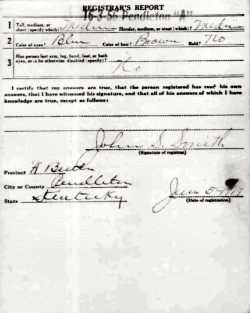 REGISTRAR'S REPORT
16-3-56 Pendleton "A"
1 Tall, medium, or short (specify which)? Medium Slender, medium, or stout (which)? Medium
2 Color of eyes? Blue Color of hair? Brown Bald? No
3 Has person lost arm, leg, hand, foot, or both eyes, or is he otherwise disabled (specify)?
No
I certify that my answers are true, that the person registered has read his own answers, that I have witnessed his signature, and that all of his answers of which I have knowledge are true, except as follows:
John S. Smith
(Signature of registrar)
Precinct
City or County Pendleton
State Kentucky
June 5
(Date of registration)